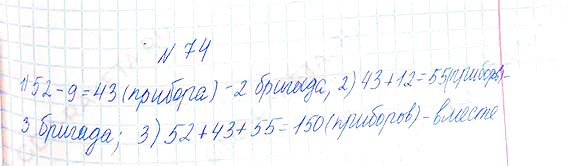 N 74
1) 52 - 9 = 43 (прибора) - 2 бригада, 2) 43 + 12 = 55 (приборов) -
3 бригада; 3) 52 + 43 + 55 = 150 (приборов) - вместе